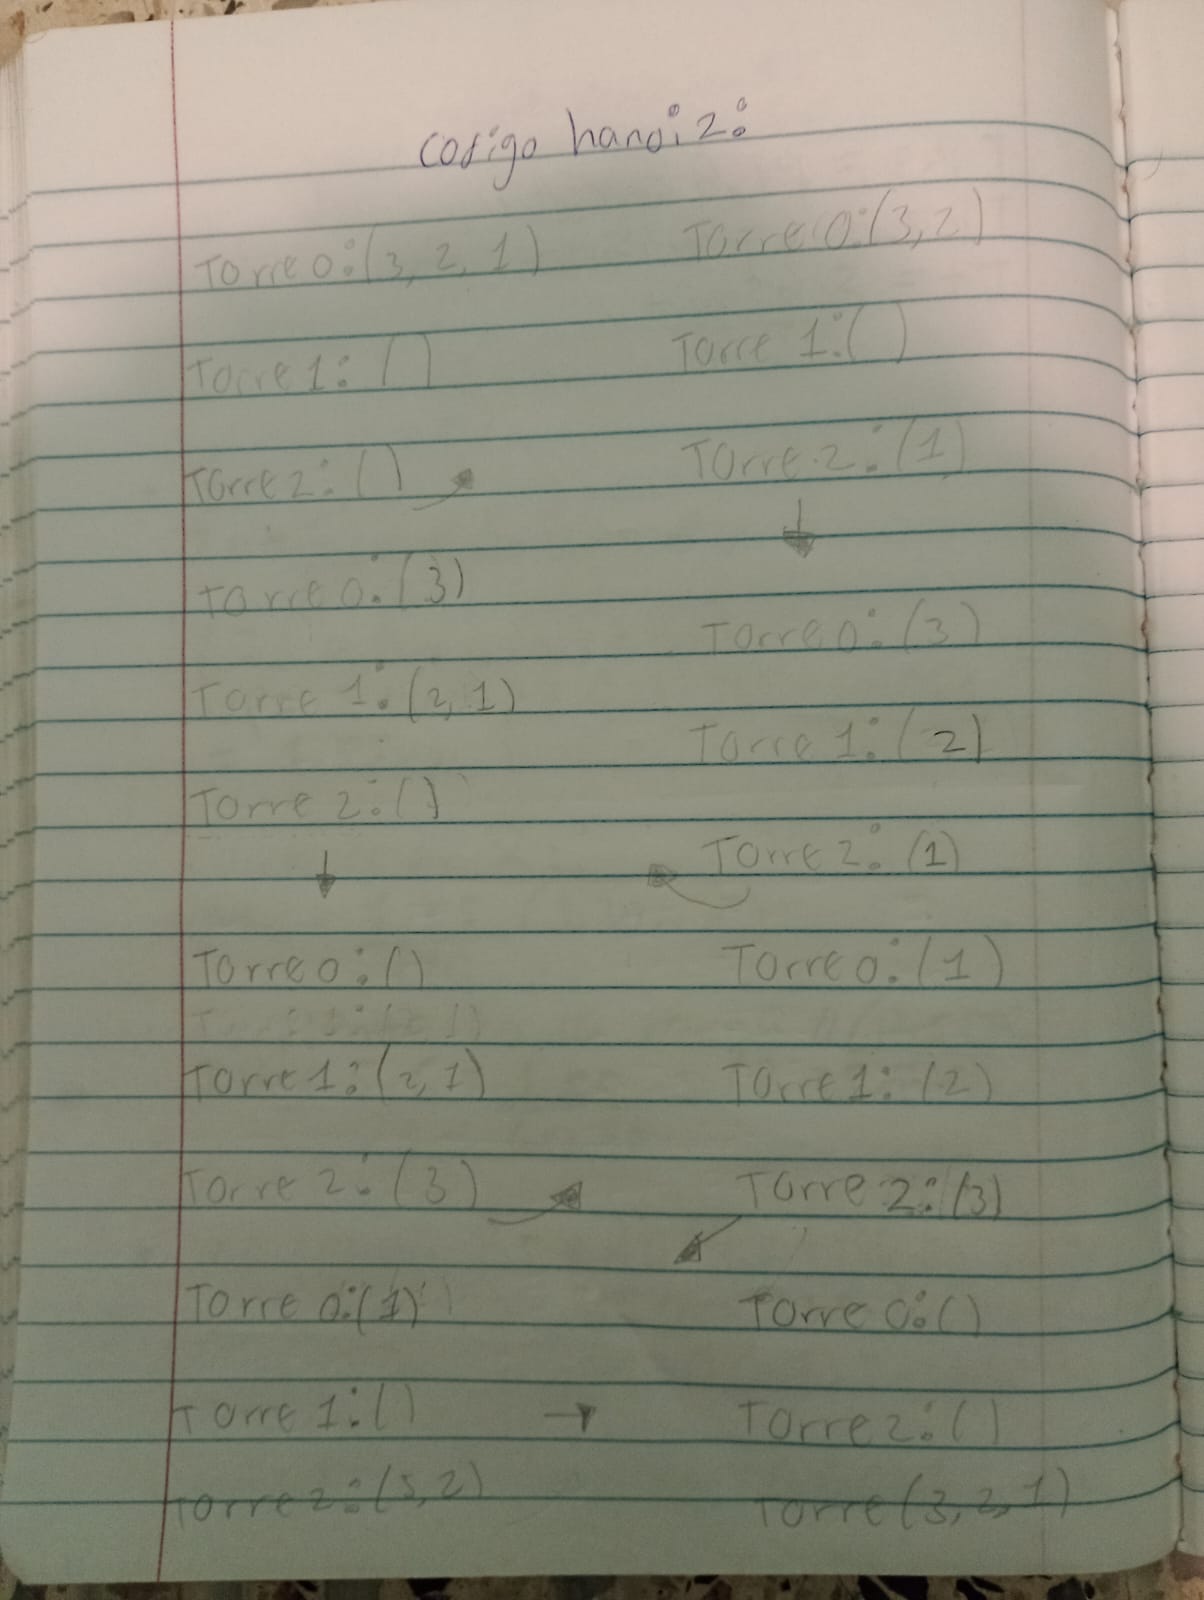 codigo hanoi 2:
Torre 0:(3, 2, 1)
Torre 1: ()
Torre 2: ()
Torre 0:(3,2)
Torre 1:()
Torre 2:(1)
Torre 0:(3)
Torre 1:(2)
Torre 2:(1)
Torre 0:(3)
Torre 1:(2,1)
Torre 2:()
Torre 0:()
Torre 1:(2,1)
Torre 2:(3)
Torre 0:(1)
Torre 1:(2)
Torre 2:(3)
Torre 0:(1)
Torre 1:()
Torre 2:(3,2)
Torre 0:()
Torre 2:()
Torre (3,2,1)